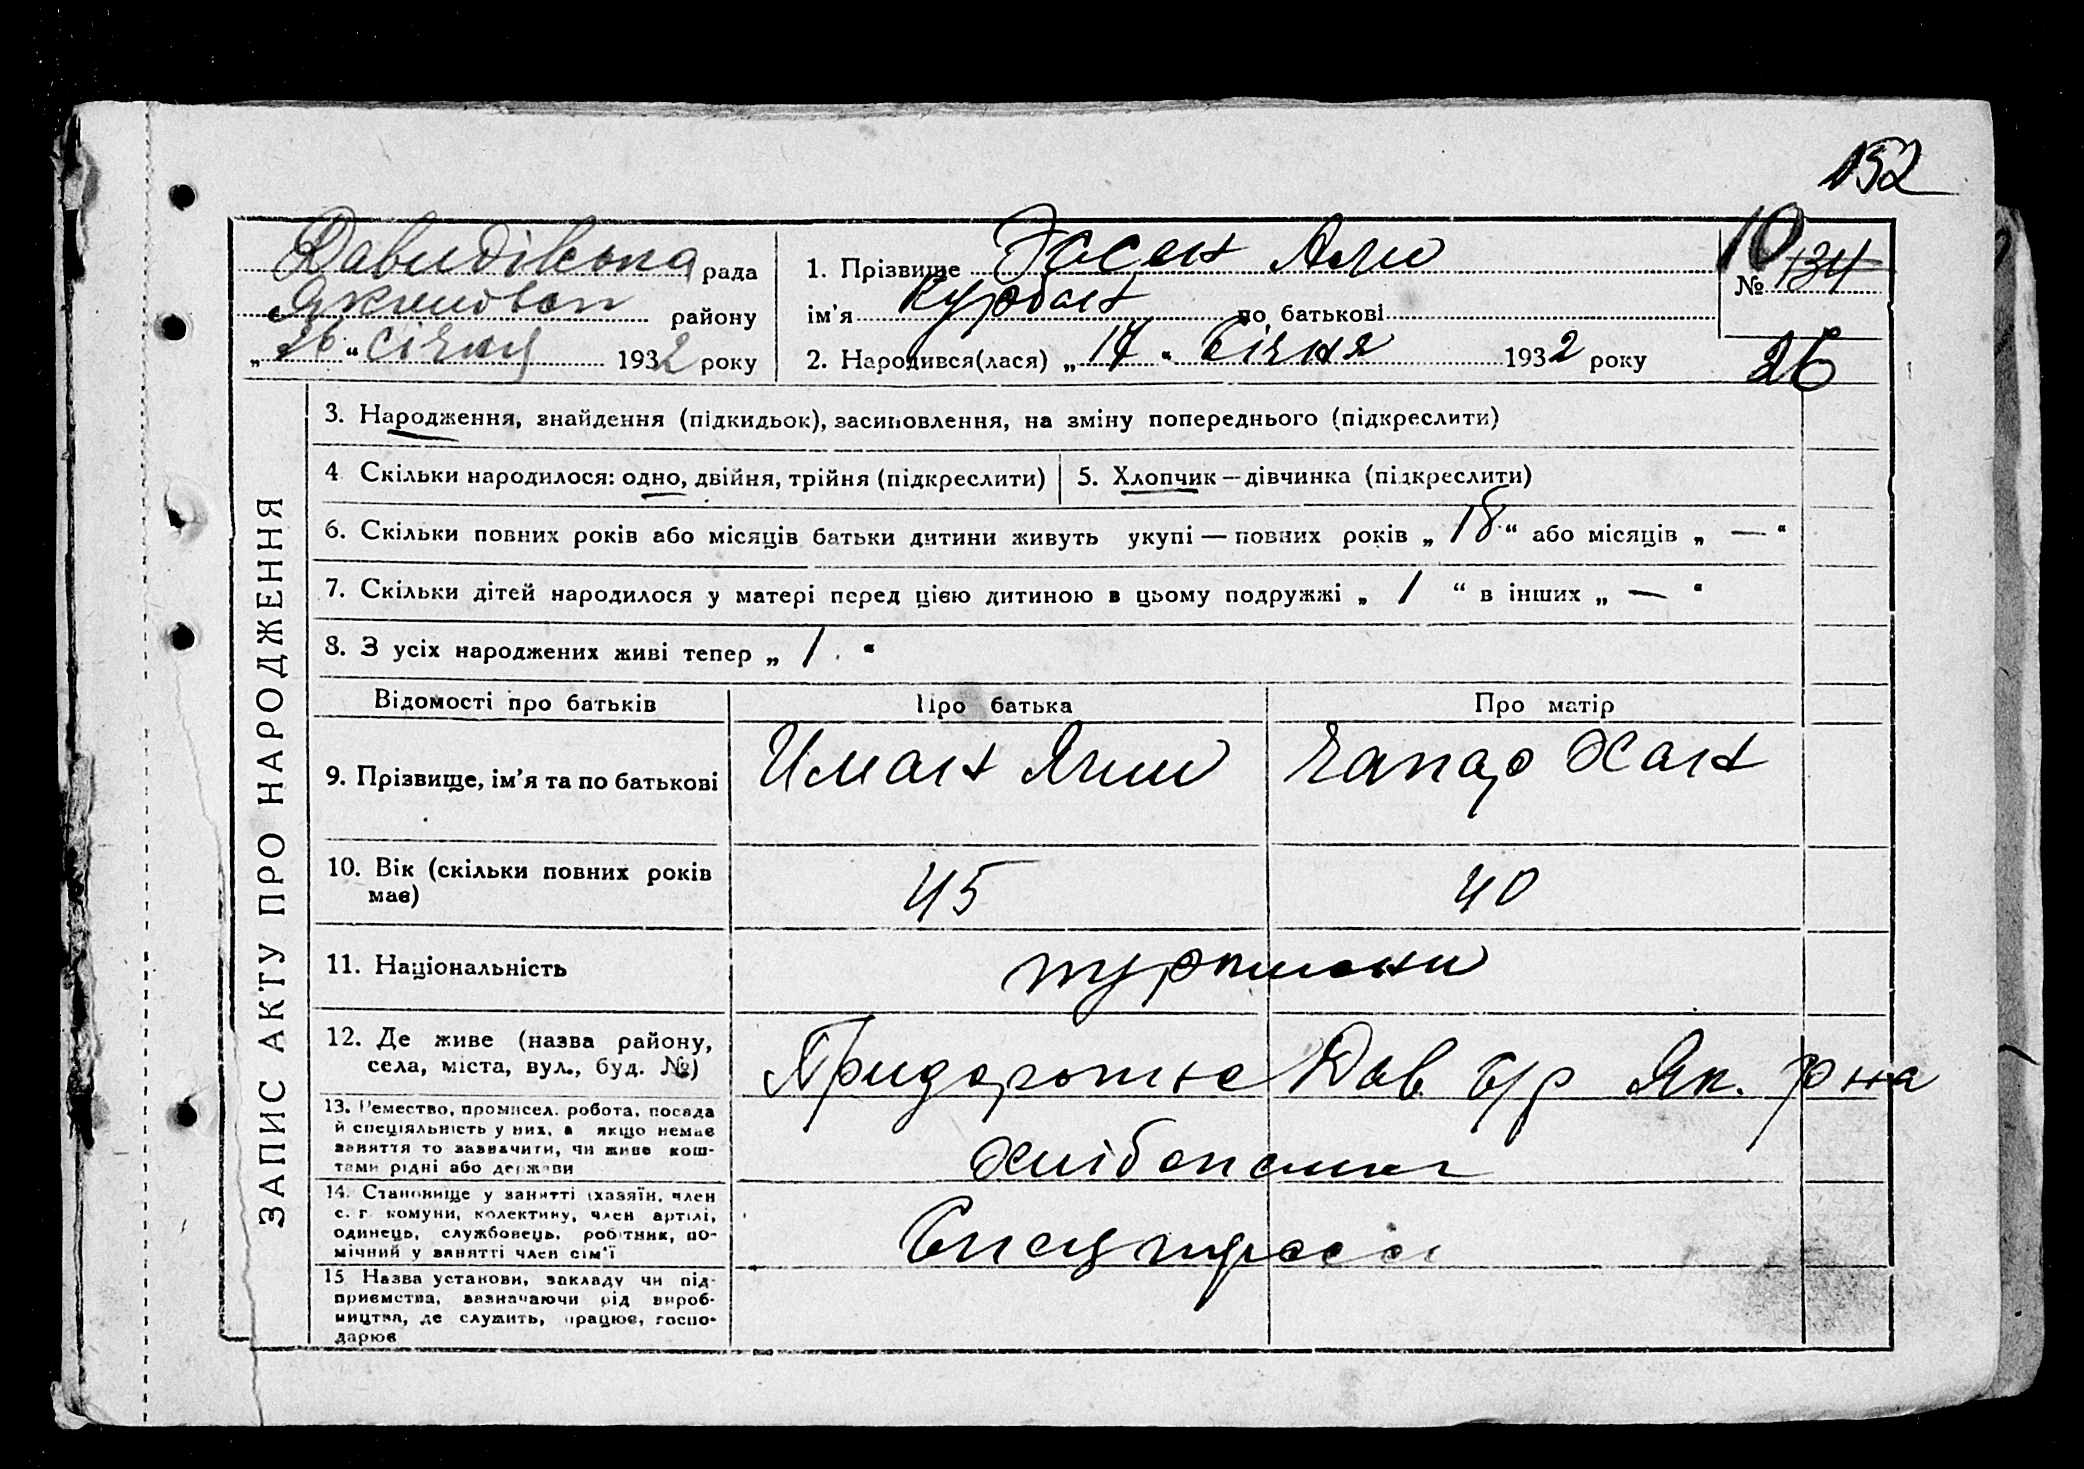 152
Давидівська рада
Якимовськ району
„ 26 “ січня 1932 року
1. Прізвище Эссен Али
ім'я Курбан по батькові
2. Народився(лася) „ 17 “ Січня 1932 року
10
№ 134
26
ЗАПИС АКТУ ПРО НАРОДЖЕННЯ
3. Народження, знайдення (підкидьок), засиновлення, на зміну попереднього (підкреслити)
4 Скільки народилося: одно, двійня, трійня (підкреслити)
5. Хлопчик — дівчинка (підкреслити)
6. Скільки повних років або місяців батьки дитини живуть укупі — повних років „ 18 “ або місяців „ — “
7. Скільки дітей народилося у матері перед цією дитиною в цьому подружжі „ 1 “ в інших „ — “
8. З усіх народжених живі тепер „ 1 “
Відомості про батьків Про батька Про матір
9. Прізвище, ім'я та по батькові Иман Хан
10. Вік (скільки повних років має) 45 40
11. Національність туркмени
12. Де живе (назва району,
села, міста, вул., буд. №) Придорожнє Дав с/р Як. рна
13. Ремество, промисел. робота, посада
й спеціяльність у них, а якщо немає
заняття то зазначити, чи живе кош-
тами рідні або держави
14. Становище у занятті (хазяїн, член
с. г. комуни, колективу, член артілі,
одинець, службовець, робітник, по-
мічний у занятті член сім'ї
15 Назва установи, закладу чи під-
приємства, зазначаючи рід вироб-
ництва, де служить, працює, госпо-
дарює